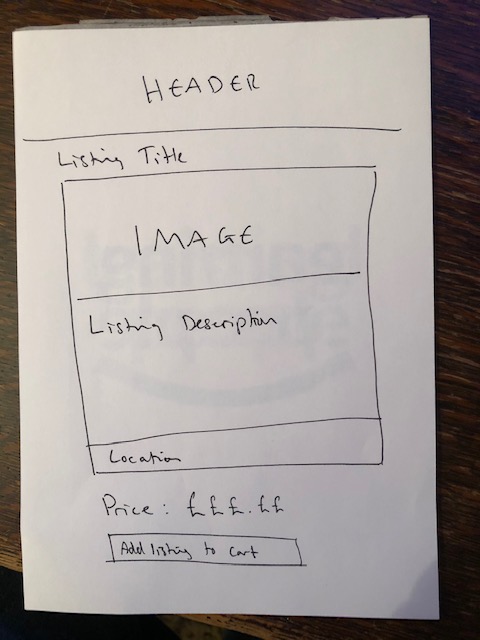 HEADER
Listing Title
IMAGE
Listing Description
Location
Price: £££.££
Add listing to cart